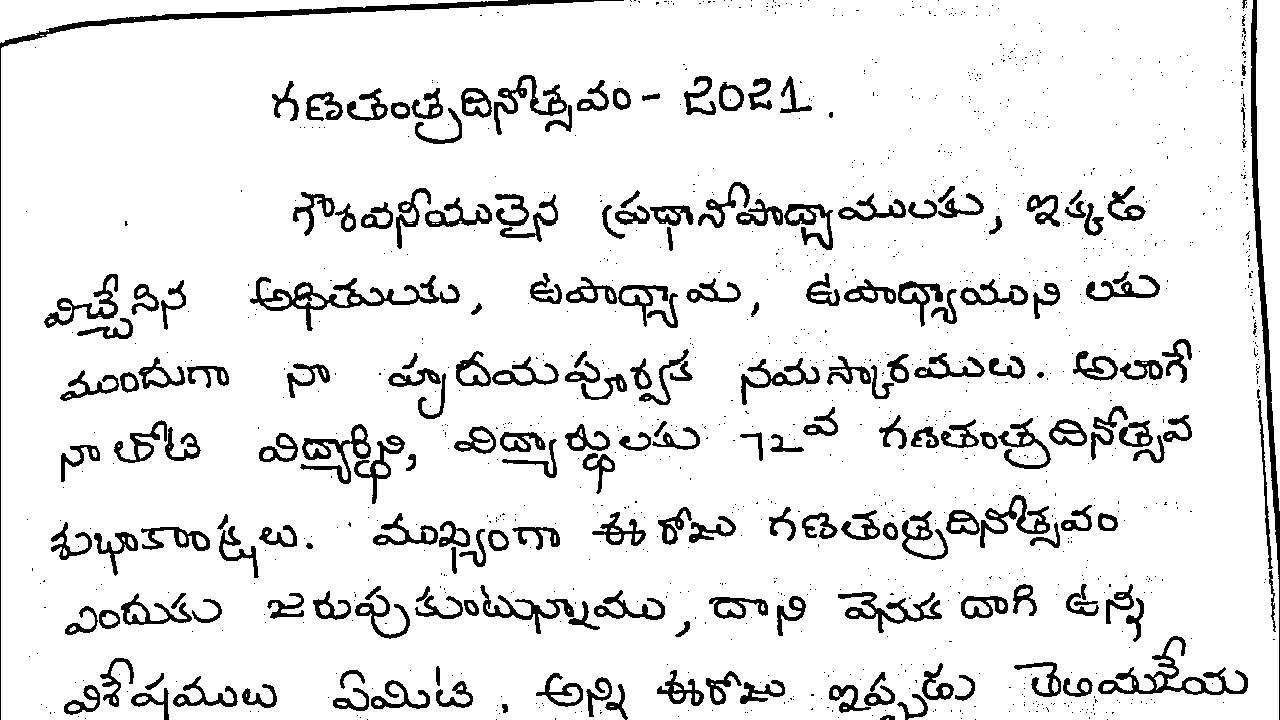 గణతంత్రదినోత్సవం - 2021.
గౌరవనీయులైన ప్రధానోపాధ్యాయులకు, ఇక్కడ
విచ్చేసిన అథితులకు, ఉపాధ్యాయ, ఉపాధ్యాయుని లకు
ముందుగా నా హృదయపూర్వక నమస్కారములు. అలాగే
నా తోటి విద్యార్థిని, విద్యార్థులకు 72వ గణతంత్రదినోత్సవ
శుభాకాంక్షలు. ముఖ్యంగా ఈ రోజు గణతంత్రదినోత్సవం
ఎందుకు జరుపుకుంటున్నాము, దాని వెనుక దాగి ఉన్న
విశేషములు ఏమిటి, అన్ని ఈరోజు ఇప్పుడు తెలియజేయ